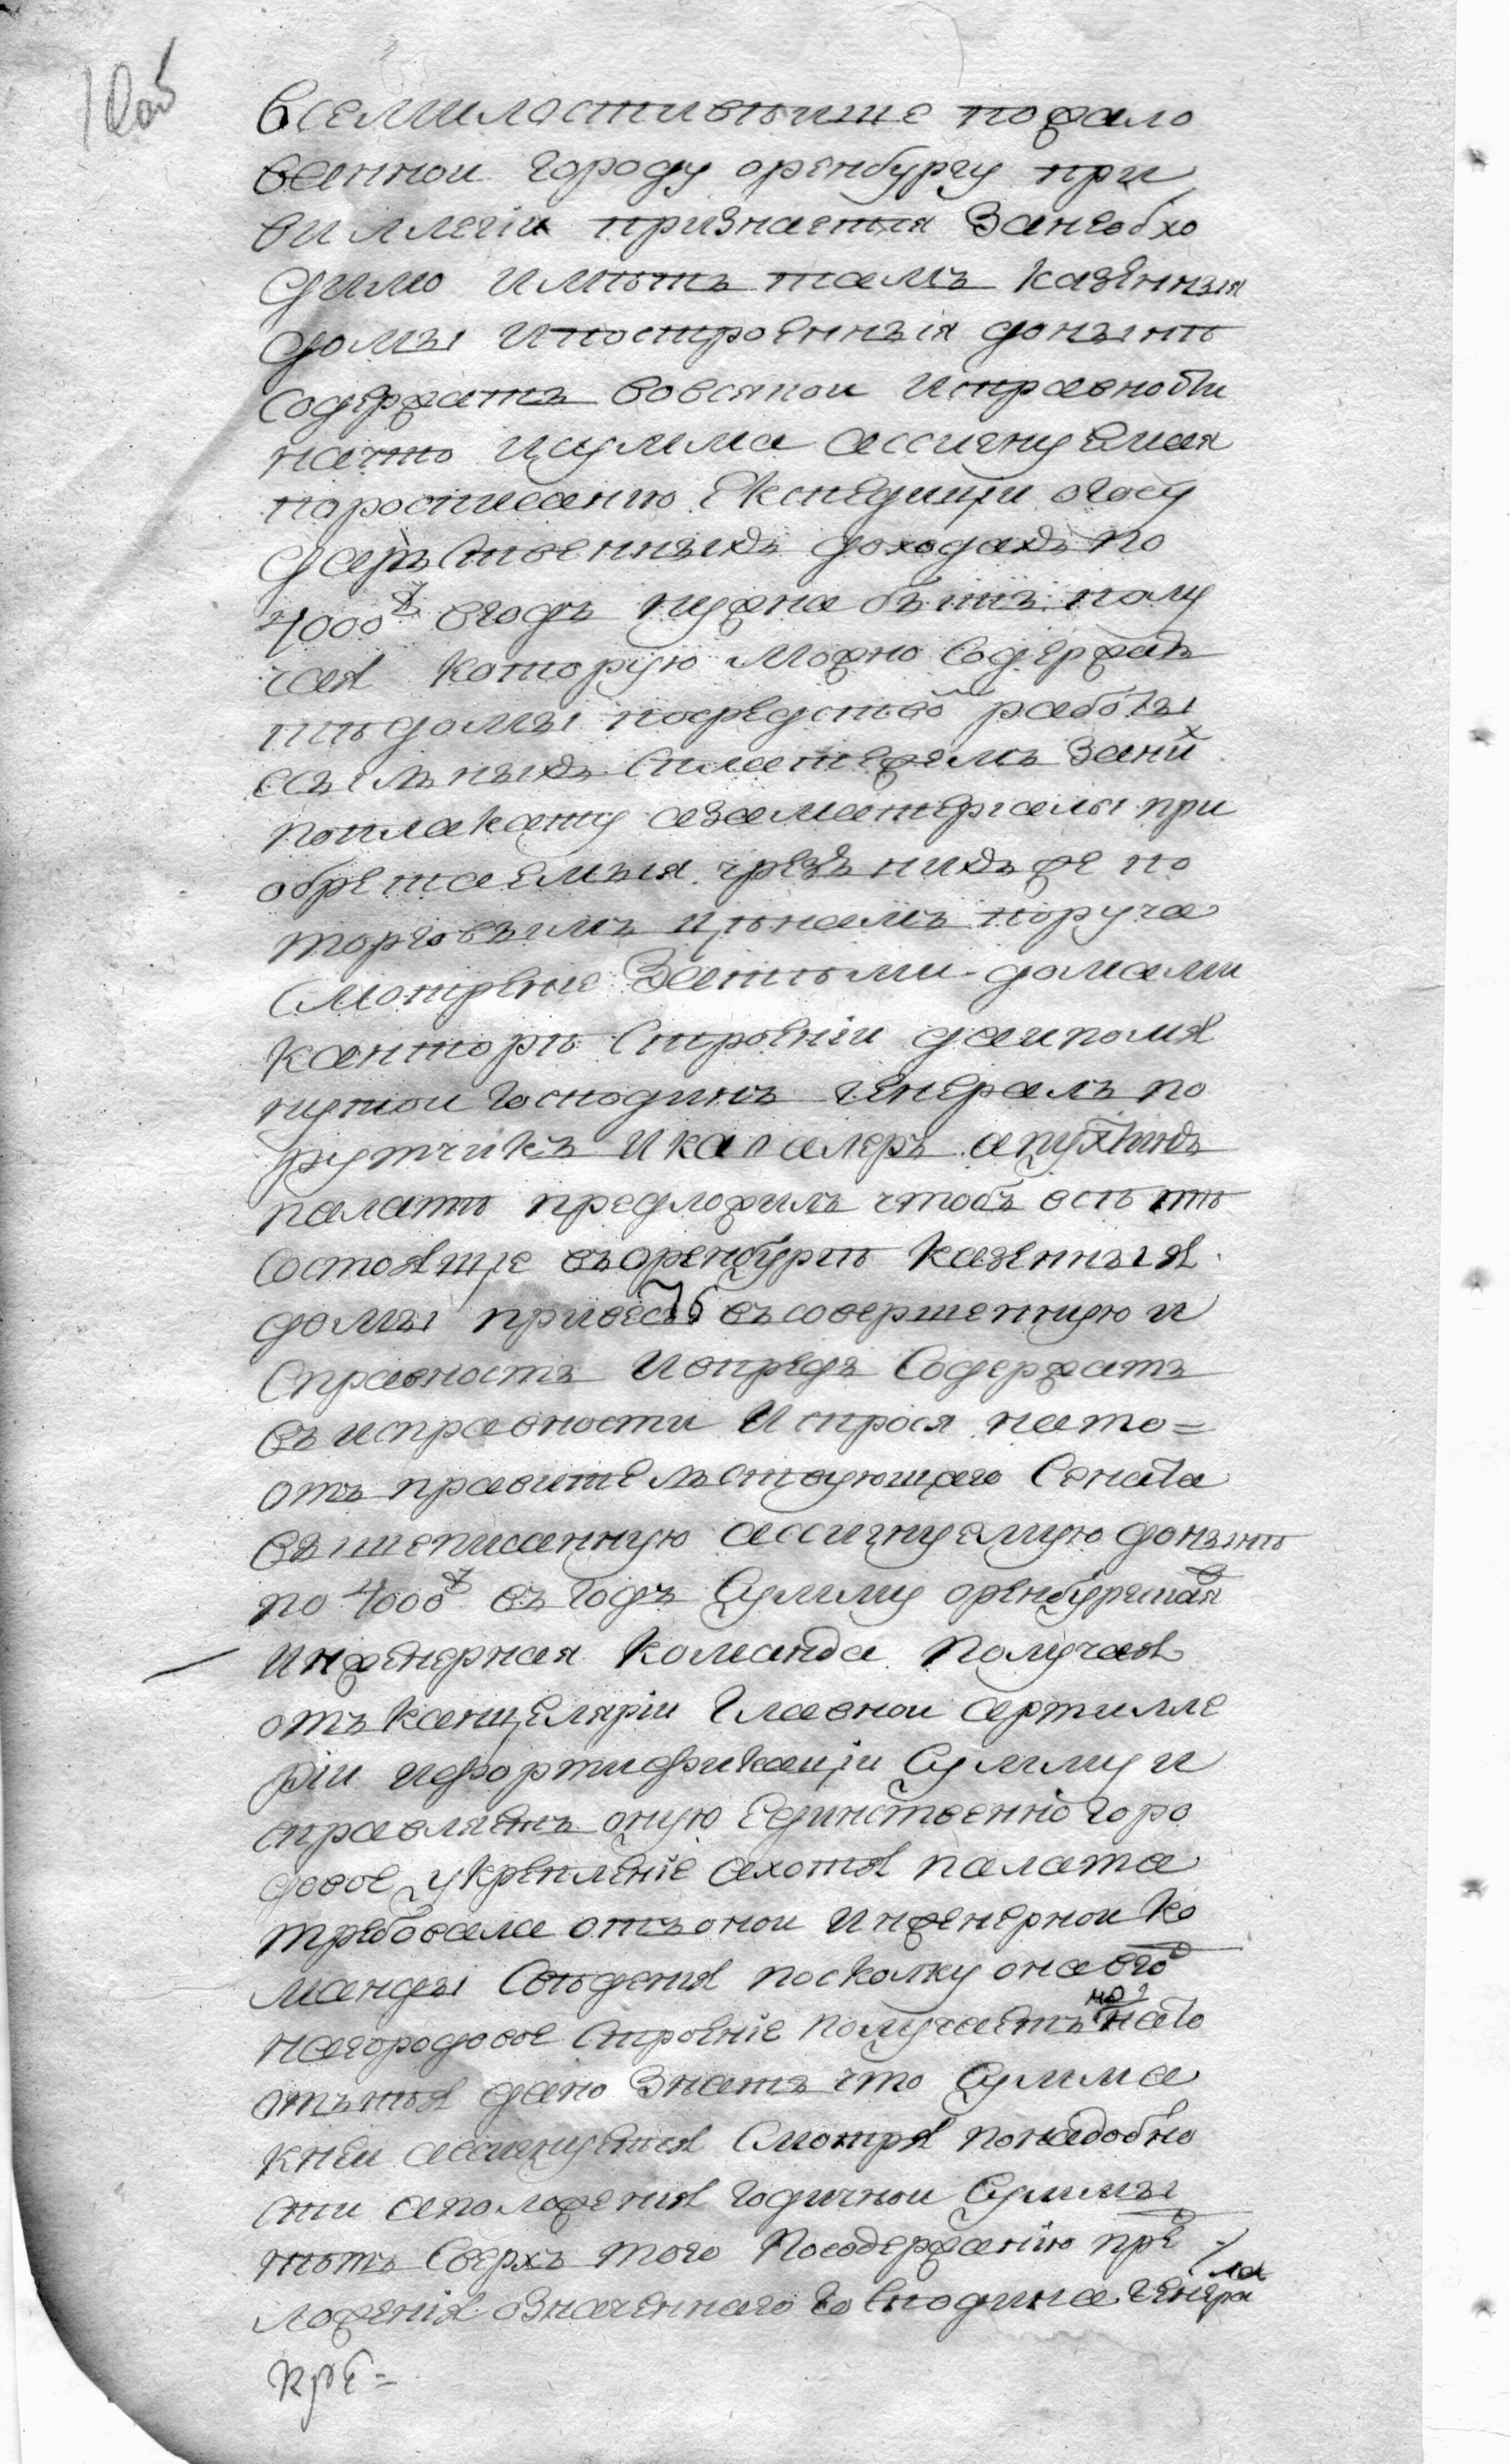 всемилостивѣише пожало
веннои городу оренбургу при
виллегіи признается занеобхо
димо имѣть тамъ казенныя
домы ипостроенныя донынѣ
содержать вовсякои исправности
начто исумма ассигнуемая
поросписанию експедиции огосу
дарственныхъ доходахъ по
4000 вгодъ нужна быть полу
чая которую можно содержать
тѣ домы посредство работы
съ ильныхъ сплатежемъ заних
поплакату азаматериалы при
обретаемыя чрезъ нихъ же по
торговымъ ценамъ поруча
смотрение заѣтѣми домами
канторѣ строеніи даипомя
нутои господинъ генералъ по
рутчикъ икавалеръ апухтинъ
палатѣ предложилъ чтобъ всѣ тѣ
состоящие въоренбургѣ казенныя
домы привесть въсовершенную и
справность ивпредь содержать
въисправности испрося нато=
отъ правительствующаго сената
вышеписанную ассигнуемую донынѣ
по 4000 въ годъ сумму оренбургская
инженерная команда получая
отъ канцеляріи главнои артилле
ріи ифортификаціи сумму и
справляетъ оную единственно горо
довое укрепленіе ахотя палата
требовала отъонои инженернои ко
манды сведения посколку она вгод
нагородовое строеніе получаетъ нато
отънея дано знать что сумма
кнеи ассигнуется смотря понадобно
сти аположения годичнои суммы
нетъ сверхъ того посодержанію пред
ложенія означеннаго господина генера
ла
кре=